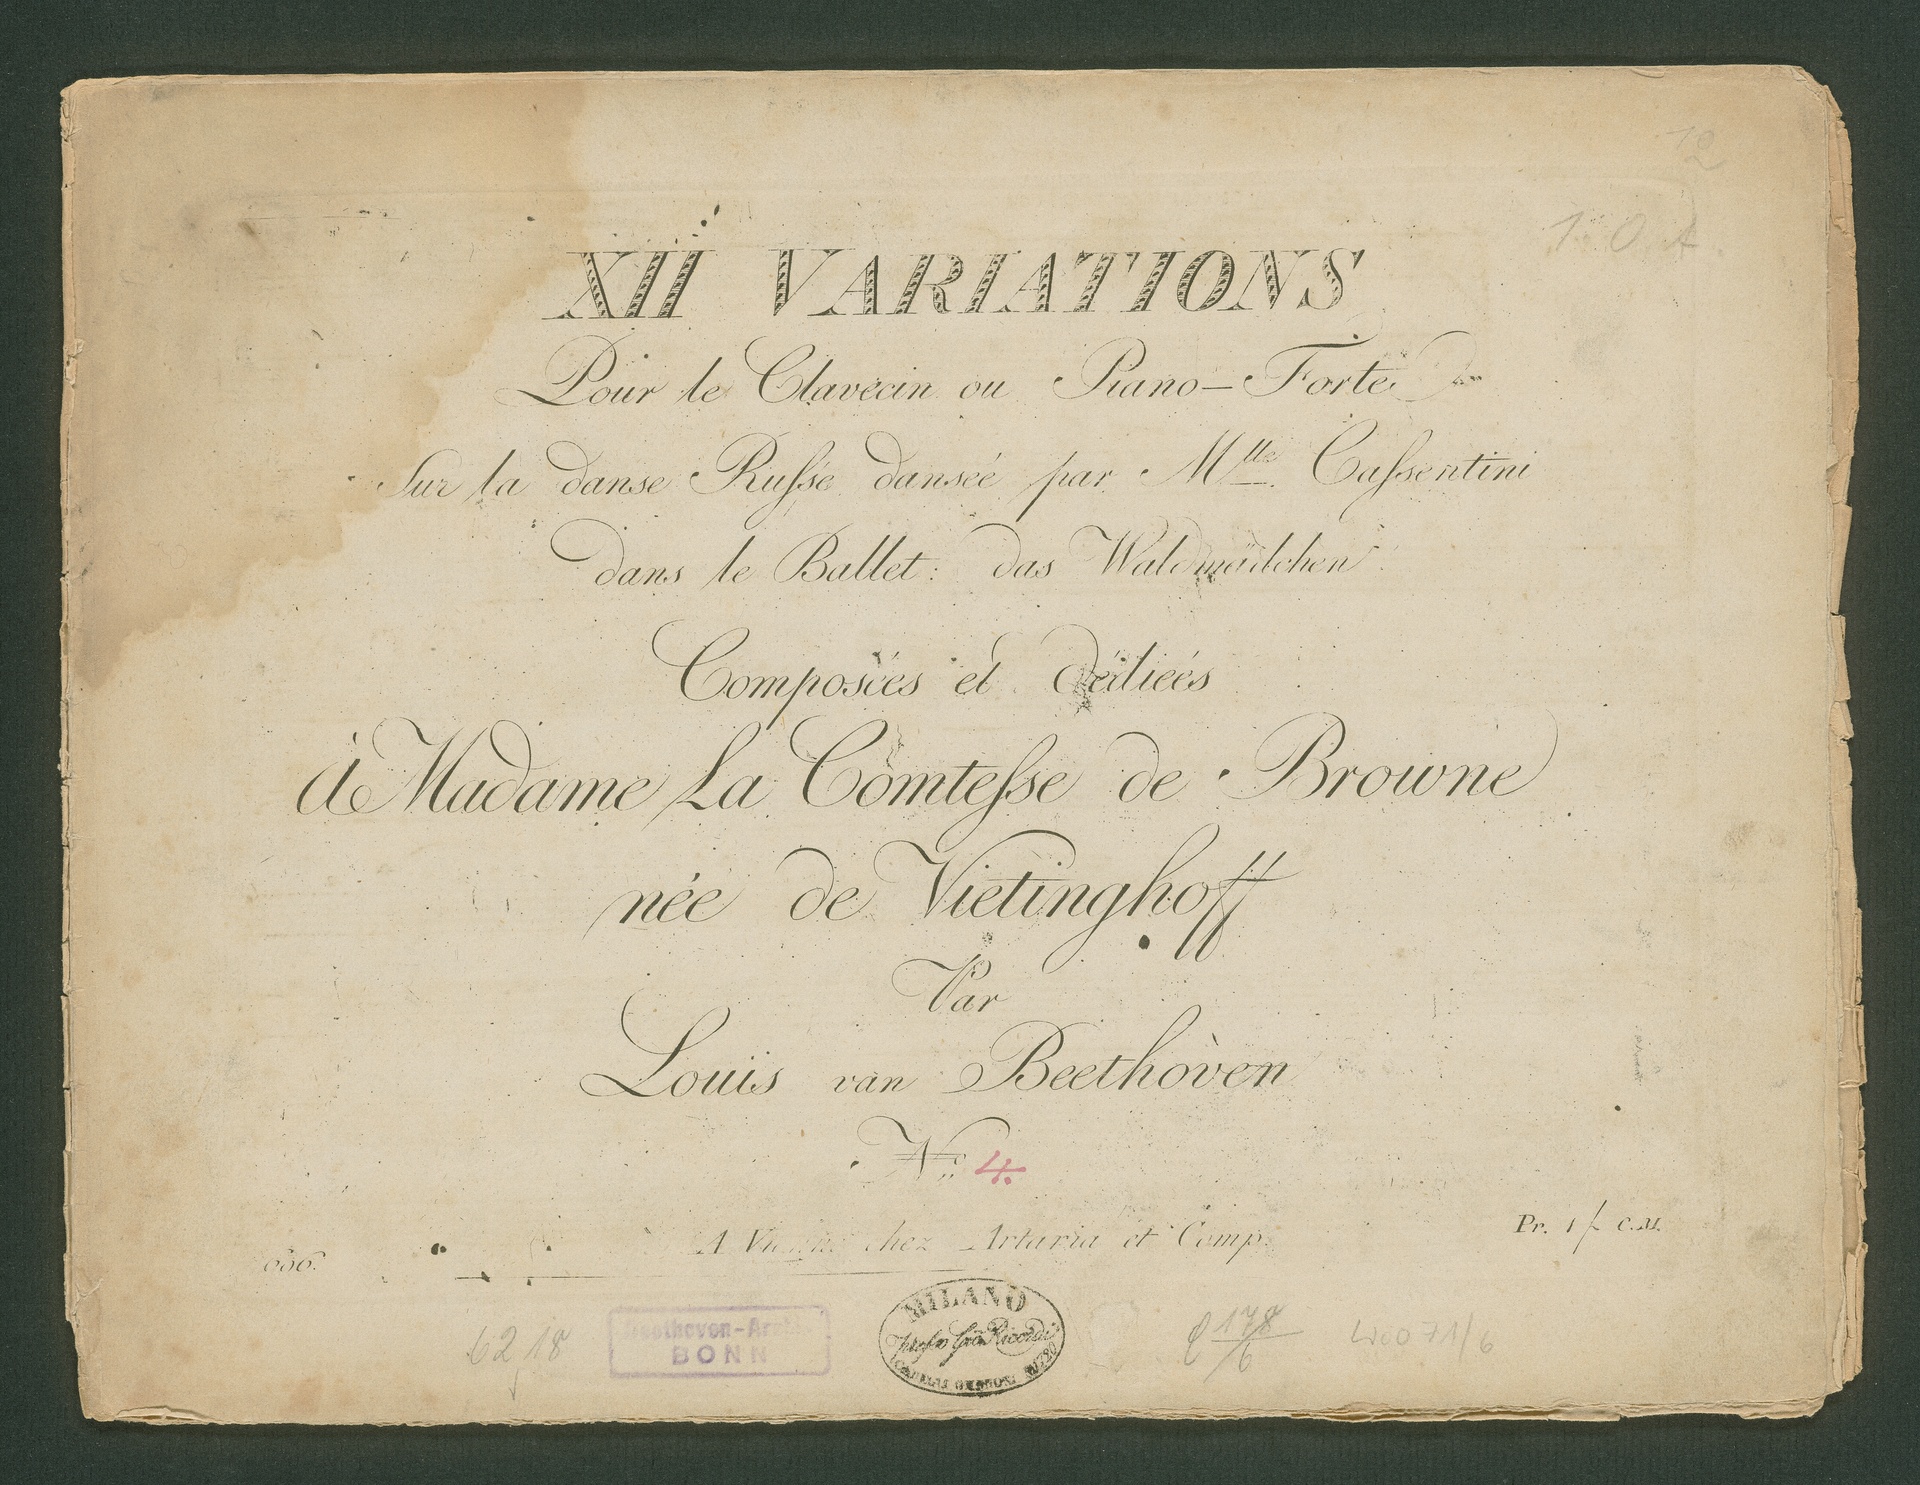 12
XII VARIATIONS
Pour le Clavecin ou Piano-Forte
Sur la danse Rufsé dansèé par Mlle Cafsentini
dans le Ballet: das Waldmädchen
Composèés et dédieés
à Madame La Comtefse de Browne
née de Vietinghoff
Par
Louis van Beethòven
No. 4.
A chez Artaria et Comp.
Pr. 1 f C.M.
62,18
Beethoven-
BONN
MILANO
Gio Ricordi
178/6
WoO 71/6